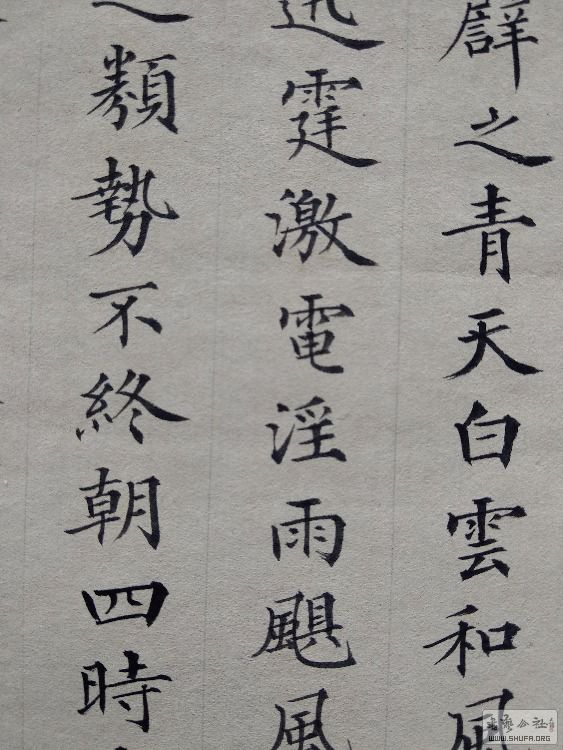 譬之青天白雲和風
迅霆激電淫雨颶風
之類勢不終朝四時
WWW.SHUFA.ORG